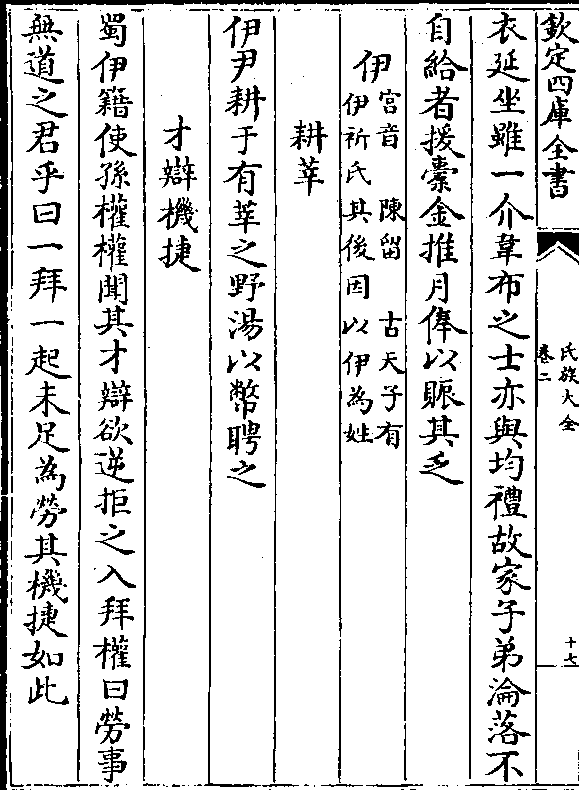 欽定四庫全書
氏族大全
卷二
十七
衣延坐雖一介韋布之士亦與均禮故家子弟淪落不
自給者援橐金推月俸以賑其乏
伊
宮音 陳留 古天子有
伊祈氏其後因以伊為姓
耕莘
伊尹耕于有莘之野湯以幣聘之
才辯機捷
蜀伊籍使孫權權聞其才辯欲逆拒之入拜權曰勞事
無道之君乎曰一拜一起未足為勞其機捷如此